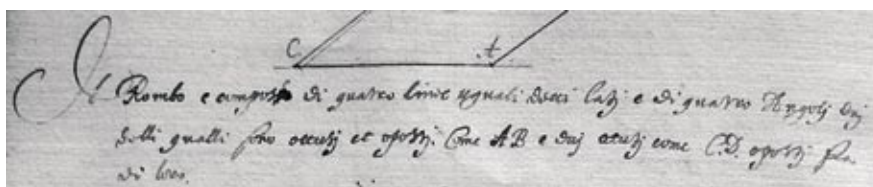 C. A.
Il Rombo e composto di quatro linie uguali detti latj e di quatro Angolj duj
delli qualli sono ottusj et opostj. Come AB e duj acutj come C.D. opostj fra
di loro.